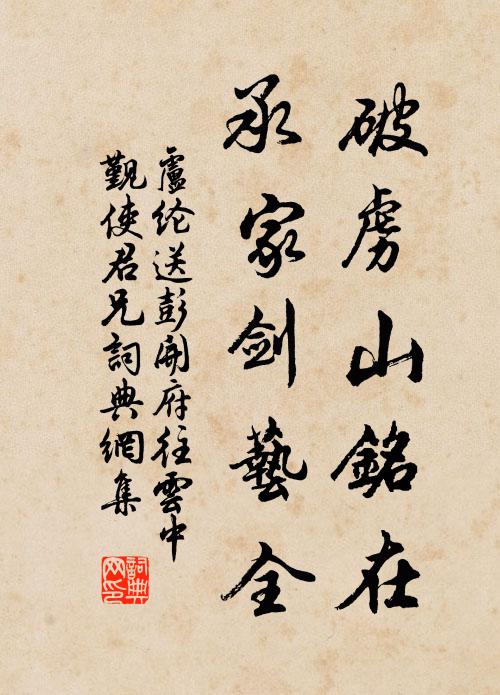 破虜山銘在
承家劍藝全
盧綸送彭開府往雲中
覲使君兄詞典網集
詞典
网印